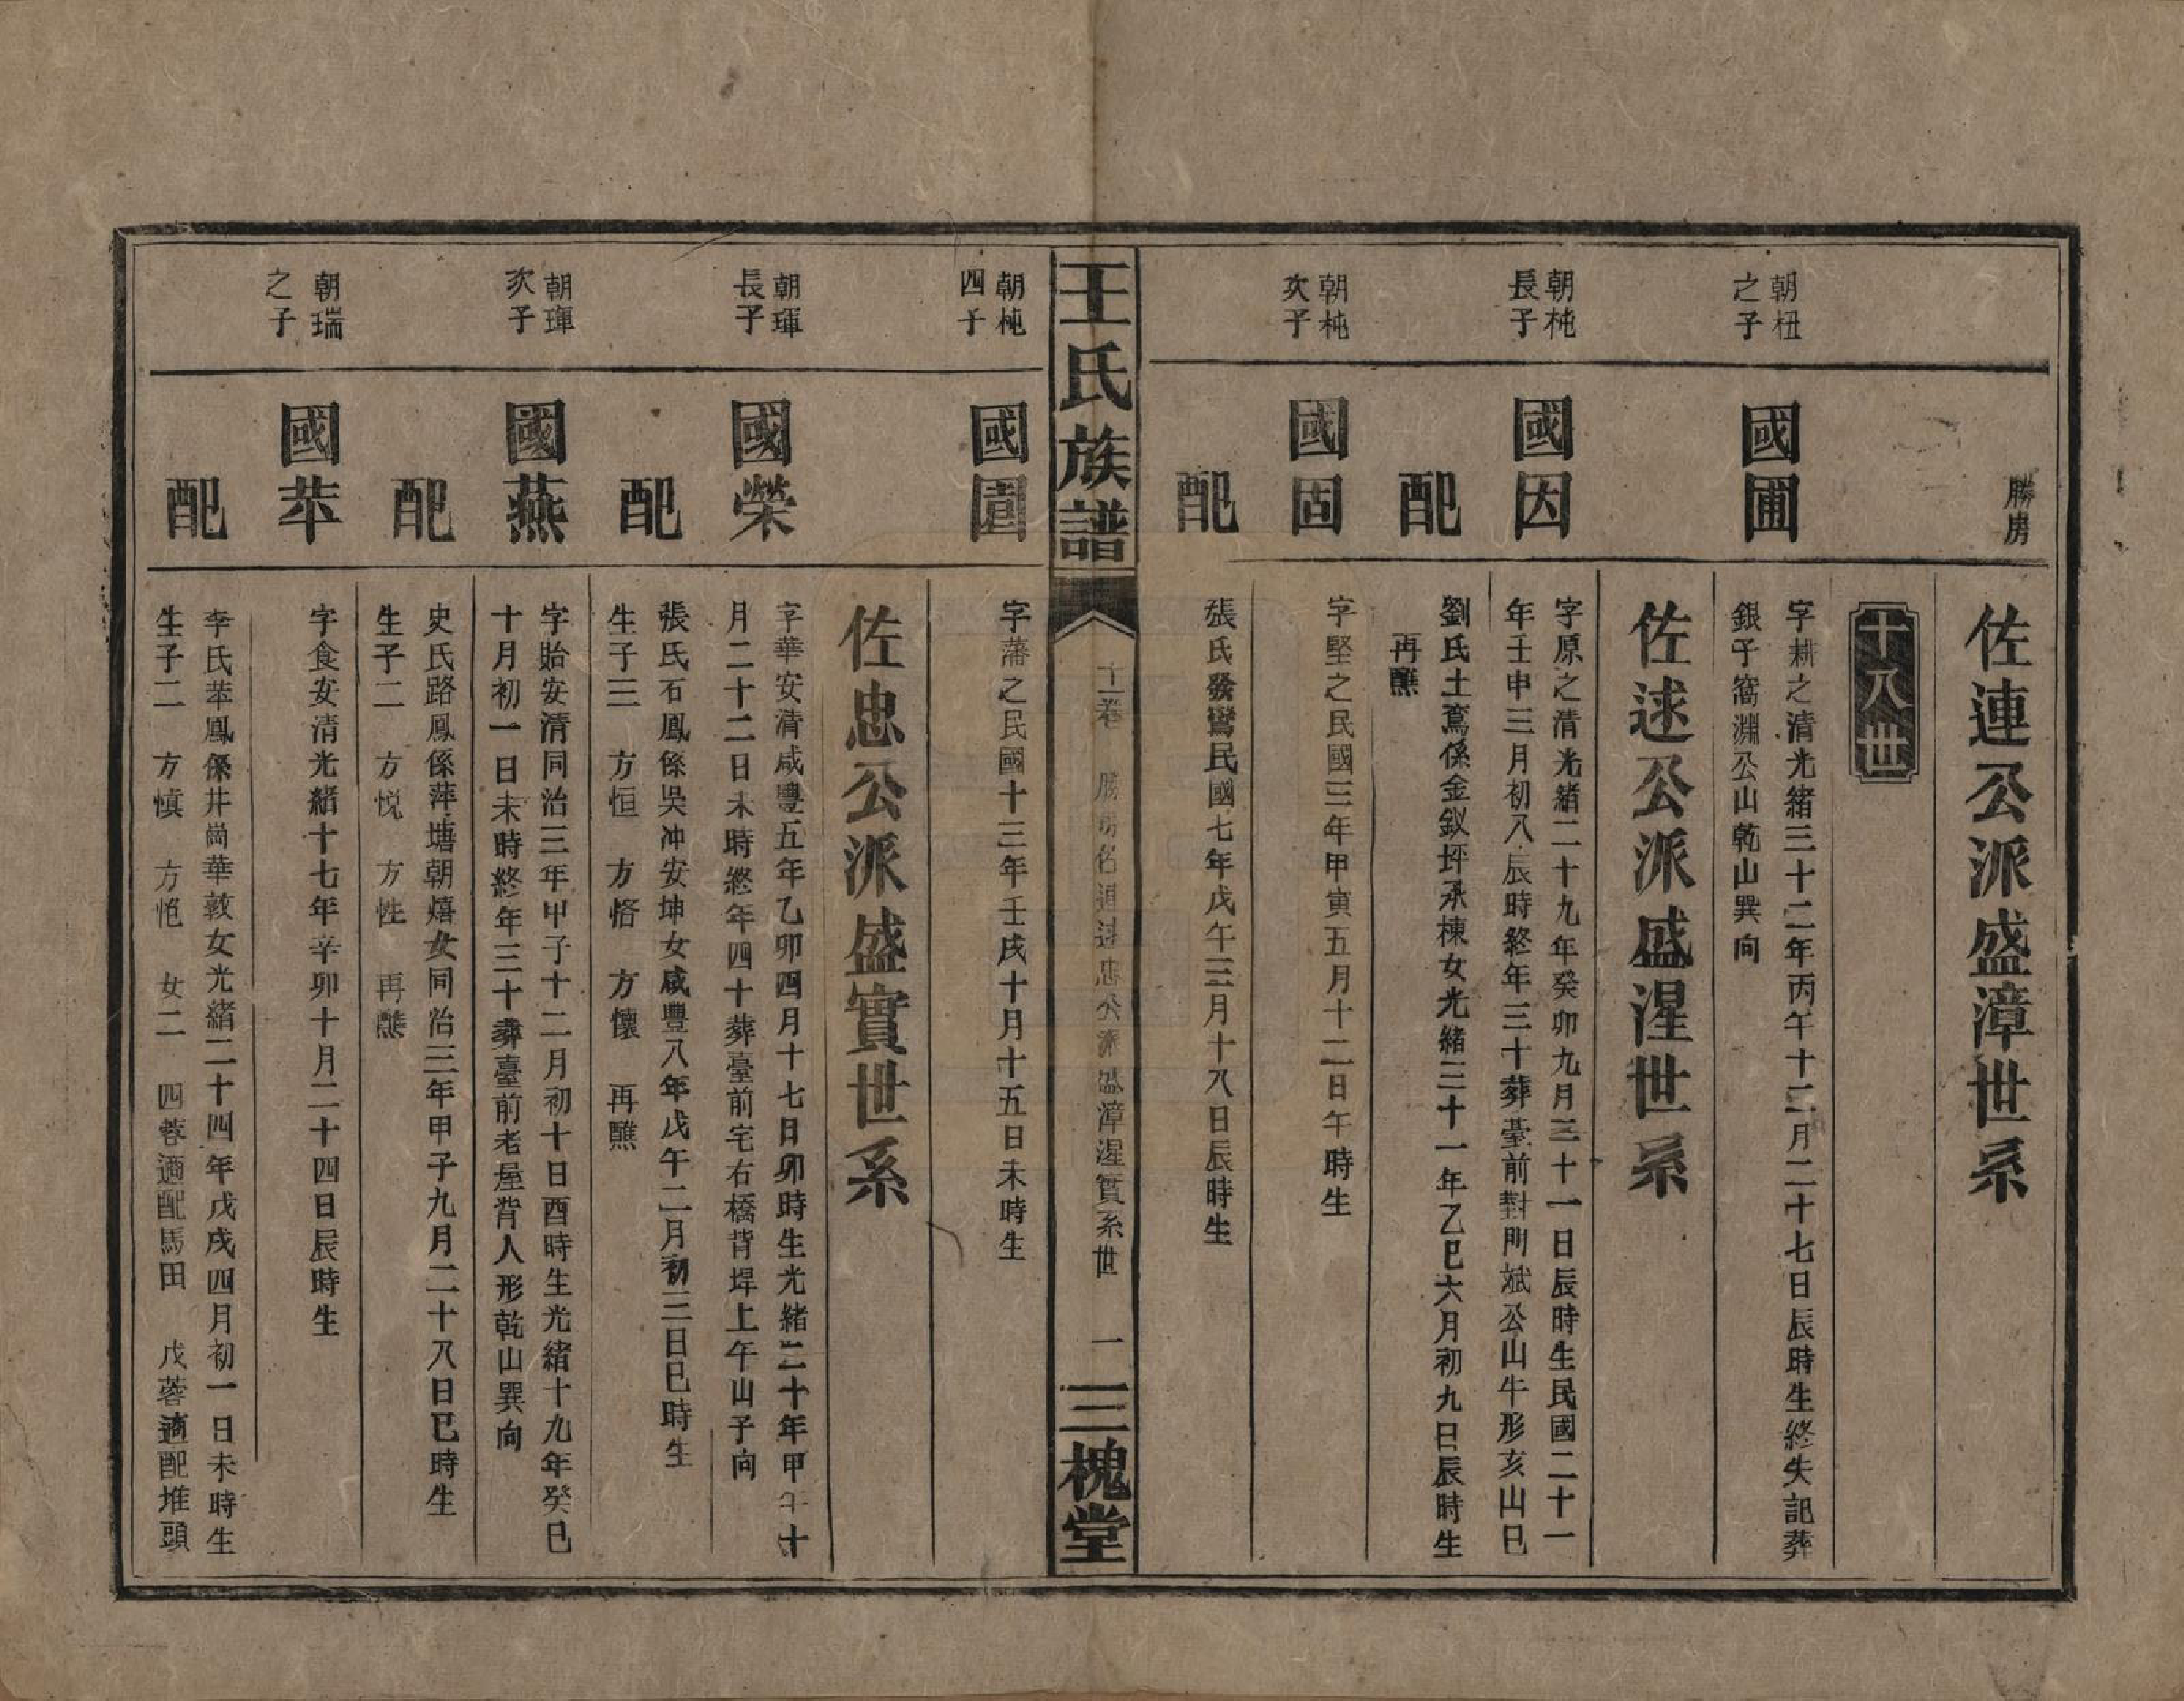 勝房
佐連公派盛漳世系
十八世
朝杻
之子
國圃
字耕之清光緒三十二年丙午十二月二十七日辰時生終失記葬
銀子窩淵公山乾山巽向
佐逑公派盛湦世系
朝杶
長子
國因
字原之清光緒二十九年癸卯九月三十一日辰時生民國二十一
年壬申三月初八辰時終年三十葬臺前對門斌公山牛形亥山巳
配
劉氏土鳶係金釵坪承棟女光緒三十一年乙巳六月初九日辰時生
再醮
朝杶
次子
國固
字堅之民國三年甲寅五月十二日午時生
配
張氏發鸞民國七年戊午三月十八日辰時生
王氏族譜
十一卷
勝房佐連逑忠公派盛漳湦實系世
一
三槐堂
朝杶
四子
國園
字藩之民國十三年壬戌十月十五日未時生
佐忠公派盛實世系
朝琿
長子
國榮
字華安清咸豐五年乙卯四月十七日卯時生光緒二十年甲午十
月二十二日未時終年四十葬臺前宅右橋背垾上午山子向
配
張氏石鳳係吳沖安坤女咸豐八年戊午二月初三日巳時生
生子三 方恒 方恪 方懷 再醮
朝琿
次子
國燕
字貽安清同治三年甲子十二月初十日酉時生光緒十九年癸巳
十月初一日未時終年三十葬臺前老屋背人形乾山巽向
配
史氏路鳳係萍塘朝嬉女同治三年甲子九月二十八日巳時生
生子二 方悅 方性 再醮
朝瑞
之子
國苹
字食安清光緒十七年辛卯十月二十四日辰時生
配
李氏苹鳳係井崗華敦女光緒二十四年戊戌四月初一日未時生
生子二 方慎 方恺 女二 四蓉適配馬田 戊蓉適配堆頭